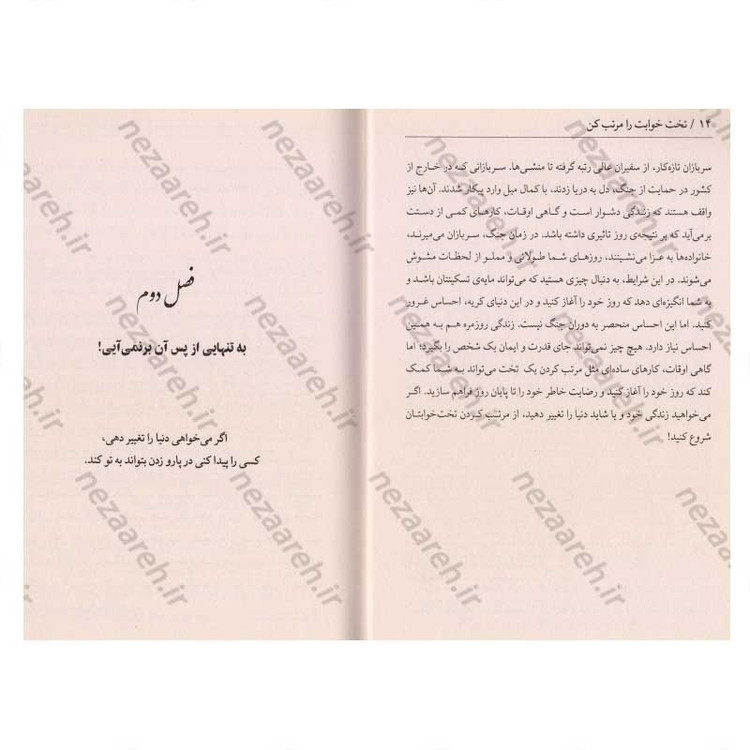 ۱۴ / تخت خوابت را مرتب کن
سربازان تازه‌کار، از سفیران عالی رتبه گرفته تا منشی‌ها. سربازانی که در خارج از
کشور در حمایت از جنگ، دل به دریا زدند، با کمال میل وارد پیکار شدند. آن‌ها نیز
واقف هستند که زندگی دشوار است و گاهی اوقات، کارهای کمی از دستت
برمی‌آید که بر نتیجه‌ی روز تاثیری داشته باشد. در زمان جنگ، سربازان می‌میرند،
خانواده‌ها به عزا می‌نشینند، روزهای شما طولانی و مملو از لحظات مشوش
می‌شوند. در این شرایط، به دنبال چیزی هستید که می‌تواند مایه‌ی تسکینتان باشد و
به شما انگیزه‌ای دهد که روز خود را آغاز کنید و در این دنیای کریه، احساس غرور
کنید. اما این احساس منحصر به دوران جنگ نیست. زندگی روزمره هم به همین
احساس نیاز دارد. هیچ چیز نمی‌تواند جای قدرت و ایمان یک شخص را بگیرد؛ اما
گاهی اوقات، کارهای ساده‌ای مثل مرتب کردن یک تخت می‌تواند به شما کمک
کند که روز خود را آغاز کنید و رضایت خاطر خود را تا پایان روز فراهم سازید. اگر
می‌خواهید زندگی خود و یا شاید دنیا را تغییر دهید، از مرتب کردن تخت‌خوابتان
شروع کنید!
فصل دوم
به تنهایی از پس آن برنمی‌آیی!
اگر می‌خواهی دنیا را تغییر دهی،
کسی را پیدا کنی در پارو زدن بتواند به تو کند.
nezaareh.ir
nezaareh.ir
nezaareh.ir
nezaareh.ir
nezaareh.ir
nezaareh.ir
nezaareh.ir
nezaareh.ir
nezaareh.ir